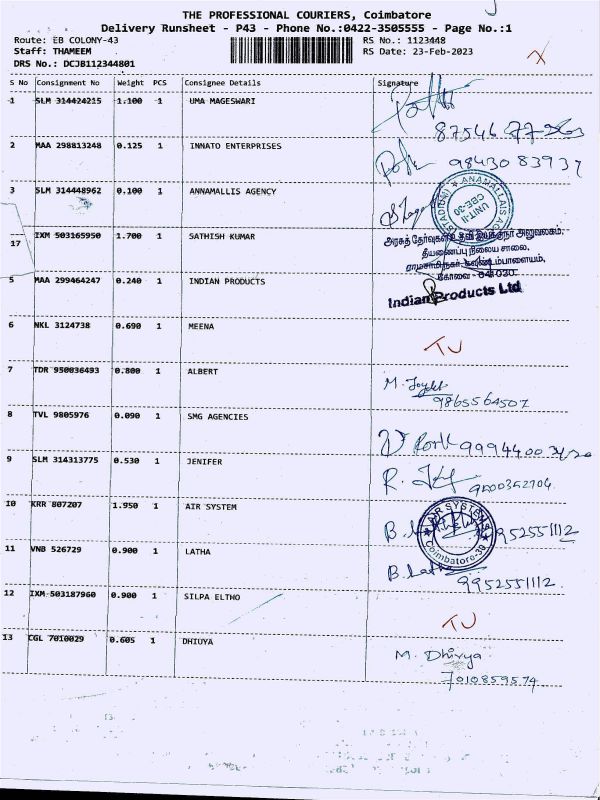 THE PROFESSIONAL COURIERS, Coimbatore
Delivery Runsheet - P43 - Phone No.:0422-3505555 - Page No.:1
Route: EB COLONY-43 RS No.: 1123448
Staff: THAMEEM RS Date: 23-Feb-2023
DRS No.: DCJB112344801
S No Consignment No Weight PCS Consignee Details Signature
1 SLM 314424215 1.100 1 UMA MAGESWARI
2 MAA 298813248 0.125 1 INNATO ENTERPRISES
98430 83937
3 SLM 314448962 0.100 1 ANNAMALLIS AGENCY
UNIT-II
CBE-30
17 IXM 503165950 1.700 1 SATHISH KUMAR
தீயணைப்பு நிலைய சாலை,
கோவை - 641 030
5 MAA 299464247 0.240 1 INDIAN PRODUCTS
Indian Products Ltd
6 NKL 3124738 0.690 1 MEENA
TU
7 TDR 950036493 0.800 1 ALBERT
9865564507
8 TVL 9805976 0.090 1 SMG AGENCIES
9 SLM 314313775 0.530 1 JENIFER
10 KRR 807207 1.950 1 AIR SYSTEM
AIR SYSTEMS
Coimbatore-30
9952551112
11 VNB 526729 0.900 1 LATHA
B. Latha
9952551112.
12 IXM 503187960 0.900 1 SILPA ELTHO
TU
13 CGL 7010029 0.605 1 DHIUYA
M. Dhivya
7010859574